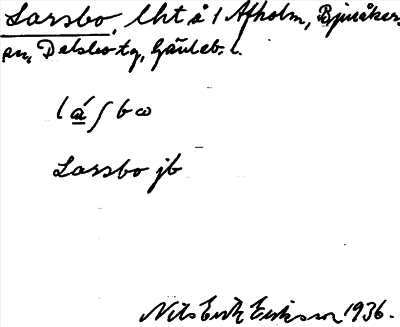 Larsbo, lht å 1 Afholm, Bjuråker
sn, Delsbo tg, Gävleb. l.
lá̲ʃbω
Larsbo jb
Nils Erik Eriksson 1936.